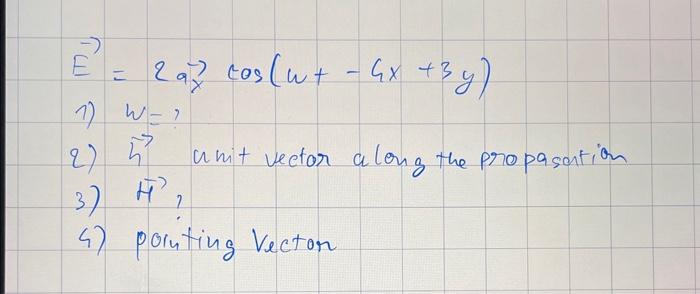 E⃗ = 2 a⃗x cos(wt - 4x + 3y)
1) w = ?
2) n⃗ unit vector along the propagation
3) H⃗ ?
4) pointing Vector